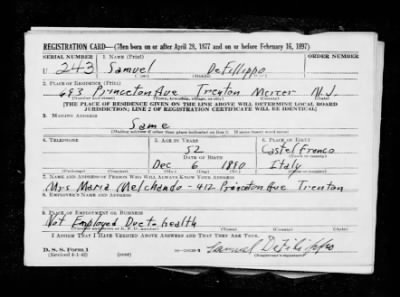 REGISTRATION CARD—(Men born on or after April 28, 1877 and on or before February 16, 1897)
SERIAL NUMBER 1. NAME (Print) ORDER NUMBER
U 243 Samuel DeFilippo
(First) (Middle) (Last)
2. PLACE OF RESIDENCE (Print)
693 Princeton Ave Trenton Mercer N.J.
(Number and street) (Town, township, village, or city) (County) (State)
[THE PLACE OF RESIDENCE GIVEN ON THE LINE ABOVE WILL DETERMINE LOCAL BOARD
JURISDICTION; LINE 2 OF REGISTRATION CERTIFICATE WILL BE IDENTICAL]
3. MAILING ADDRESS
Same
[Mailing address if other than place indicated on line 2. If same insert word same]
4. TELEPHONE 5. AGE IN YEARS 6. PLACE OF BIRTH
52 Castelfranco
DATE OF BIRTH
Dec 6 1890 Italy
(Exchange) (Number) (Mo.) (Day) (Yr.) (State or country)
7. NAME AND ADDRESS OF PERSON WHO WILL ALWAYS KNOW YOUR ADDRESS
Mrs Maria Melchando - 412 Princeton Ave Trenton
8. EMPLOYER'S NAME AND ADDRESS
9. PLACE OF EMPLOYMENT OR BUSINESS
Not Employed Due to health
(Number and street or R. F. D. number) (Town) (County) (State)
I AFFIRM THAT I HAVE VERIFIED ABOVE ANSWERS AND THAT THEY ARE TRUE.
D. S. S. Form 1 Samuel DeFilippo
(Revised 4-1-42) (over) (Registrant's signature)